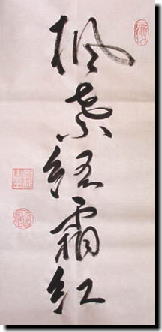 楓葉經霜紅